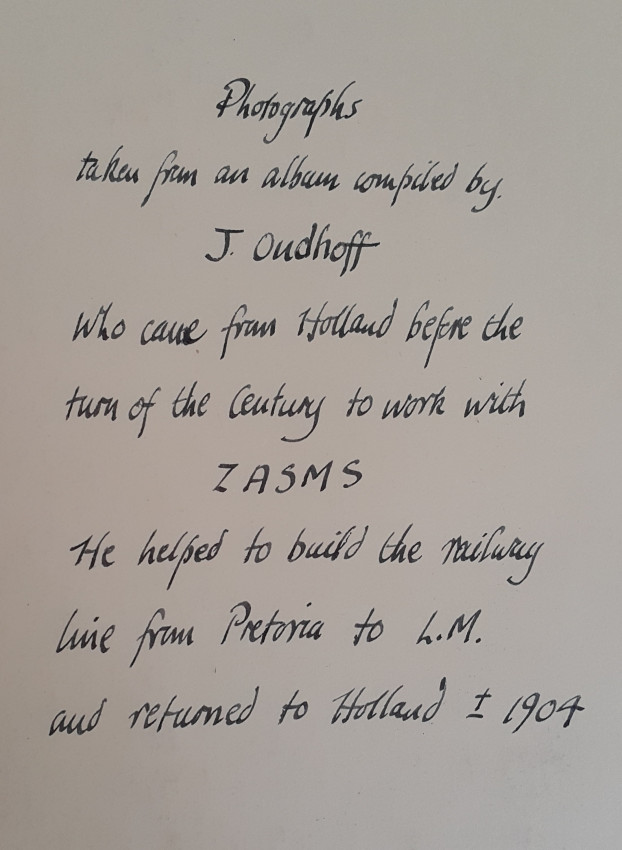 Photographs
taken from an album compiled by.
J. Oudhoff
Who came from Holland before the
turn of the Century to work with
ZASMS
He helped to build the railway
line from Pretoria to L.M.
and returned to Holland ± 1904